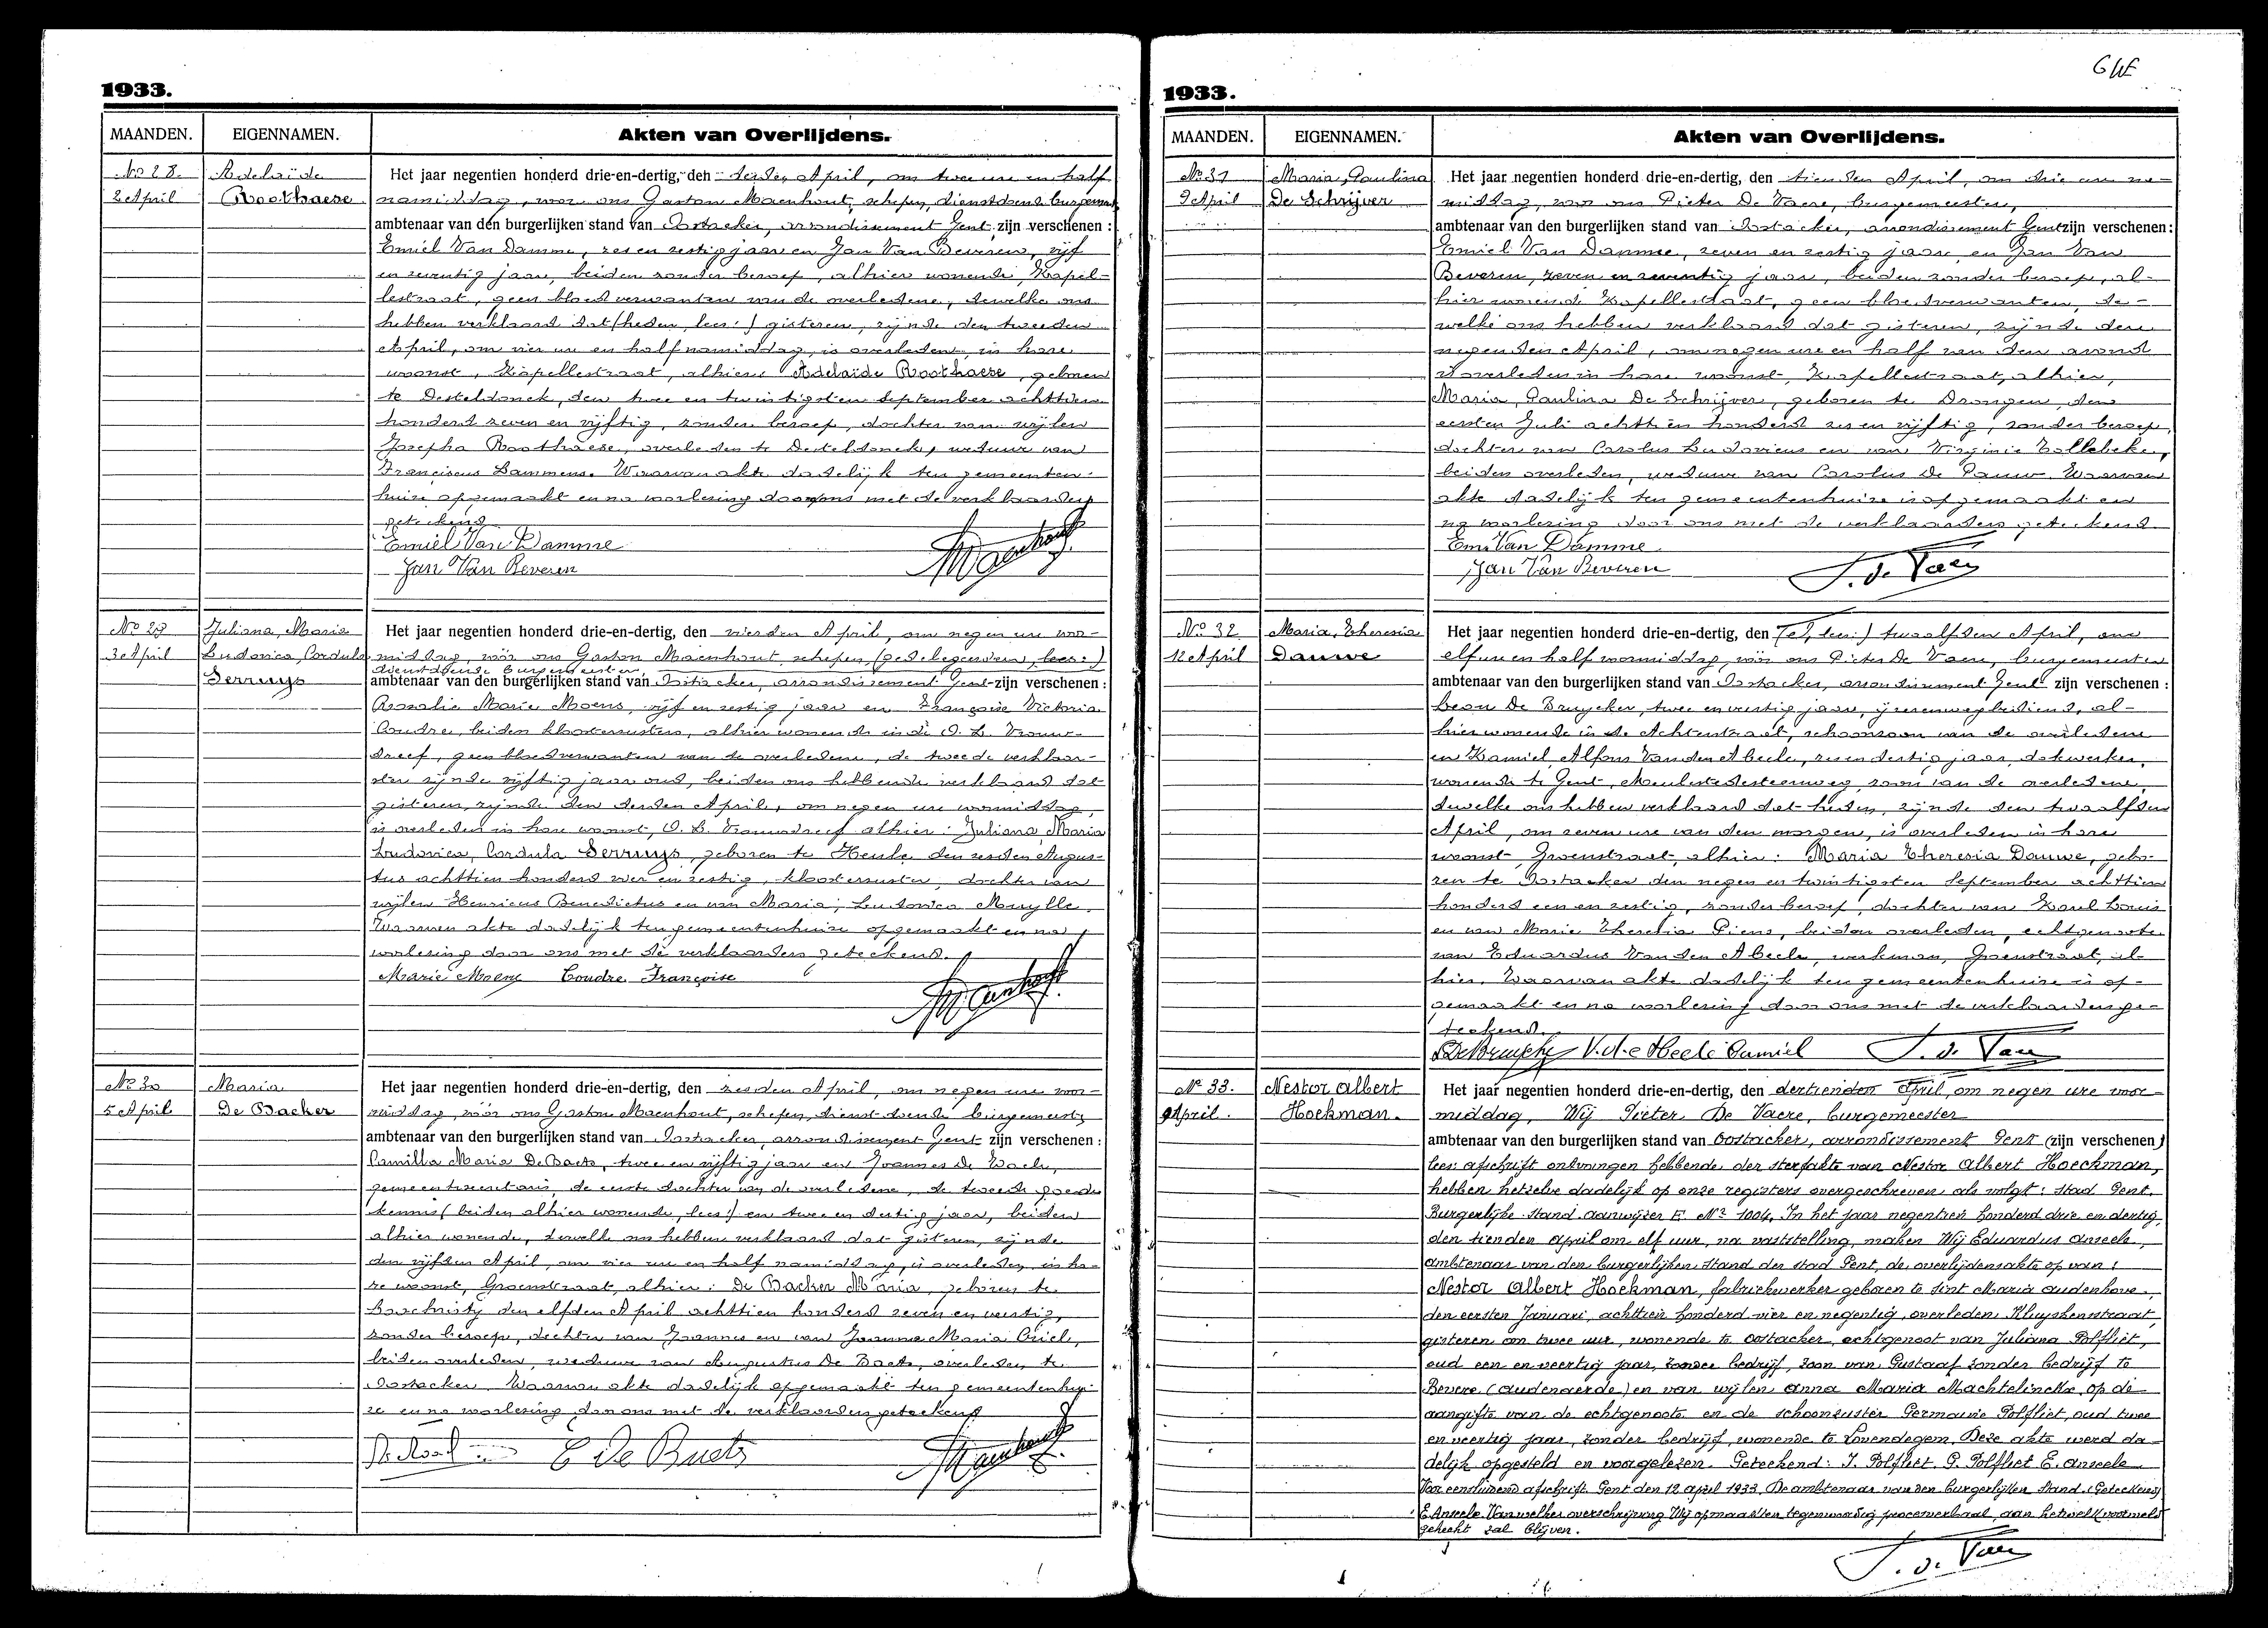 1933.
MAANDEN. EIGENNAMEN. Akten van Overlijdens.
No 28. Adelaïde
2 April Roothaese
Het jaar negentien honderd drie-en-dertig, den derden April, om twee ure en half
namiddag, voor ons Gaston Maenhout, schepen, dienstdoend burgemeester
ambtenaar van den burgerlijken stand van Oostacker, arrondissement Gent zijn verschenen :
Emiel Van Damme, zes en zestig jaar en Jan Van Beveren, vijf
en zeventig jaar, beiden zonder beroep, alhier wonende, Kapel-
lestraat, geen bloedverwanten van de overledene, dewelke ons
hebben verklaard dat (heden, lees:) gisteren, zijnde den tweeden
April, om vier ure en half namiddag, is overleden, in hare
woonst, Kapellestraat, alhier: Adelaïde Roothaese, geboren
te Desteldonck, den twee en twintigsten September achttien
honderd zeven en vijftig, zonder beroep, dochter van wijlen
Josepha Roothaese, overleden te Desteldonck, weduwe van
Franciscus Lammens. Waarvan akte dadelijk ten gemeenten-
huize opgemaakt en na voorlezing door ons met de verklaarders
geteekend
Emiel Van Damme
Jan Van Beveren
Maenhout
No 29 Juliana, Maria
3 April Ludovica, Cordula
Serruys
Het jaar negentien honderd drie-en-dertig, den vierden April, om negen ure voor-
middag, vóór ons Gaston Maenhout, schepen, (gedelegeerden, lees:)
dienstdoende burgemeester
ambtenaar van den burgerlijken stand van Oostacker, arrondissement Gent zijn verschenen :
Rosalie Marie Moens, vijf en zestig jaar en Françoise Victoria
Coudre, beiden kloosterzusters, alhier wonende in de O. L. Vrouw-
dreef, geen bloedverwanten van de overledene, de tweede verklaar-
ster zijnde vijftig jaar oud, beiden ons hebbende verklaard dat
gisteren, zijnde den derden April, om negen ure voormiddag,
is overleden in hare woonst, O. L. Vrouwdreef alhier: Juliana Maria
Ludovica, Cordula Serruys, geboren te Heule den zesden Augus-
tus achttien honderd vier en zestig, kloosterzuster, dochter van
wijlen Henricus Benedictus en van Maria, Ludovica Muylle.
Waarvan akte dadelijk ten gemeentenhuize opgemaakt en na
voorlezing door ons met de verklaarders geteekend.
Marie Moens Coudre Françoise
Maenhout
No 30 Maria
5 April De Backer
Het jaar negentien honderd drie-en-dertig, den zesden April, om negen ure voor-
middag, vóór ons Gaston Maenhout, schepen, dienstdoende burgemeester
ambtenaar van den burgerlijken stand van Oostacker, arrondissement Gent zijn verschenen :
Camilla Maria De Baets, twee en vijftig jaar en Joannes De
gemeentesecretaris, de eerste dochter van de overledene, de tweede goede
kennis (beiden alhier wonende, lees:) en twee en dertig jaar, beiden
alhier wonende, dewelke ons hebben verklaard dat gisteren, zijnde
den vijfden April, om vier ure en half namiddag, is overleden, in ha-
re woonst, Groenstraat, alhier: De Backer Maria, geboren te
Loochristy den elfden April achttien honderd zeven en veertig,
zonder beroep, dochter van Joannes en van Joanna Maria
beiden overleden, weduwe van Augustus De Baets, overleden te
Oostacker. Waarvan akte dadelijk opgemaakt ten gemeentenhui-
ze en na voorlezing door ons met de verklaarders geteekend
C De Baets
Maenhout
1933.
MAANDEN. EIGENNAMEN. Akten van Overlijdens.
No 31 Maria, Paulina
9 April De Schrijver
Het jaar negentien honderd drie-en-dertig, den tienden April, om drie ure na-
middag, voor ons Pieter De Vaere, burgemeester,
ambtenaar van den burgerlijken stand van Oostacker, arrondissement Gent zijn verschenen :
Emiel Van Damme, zeven en zestig jaar, en Jan Van
Beveren, zeven en zeventig jaar, beiden zonder beroep, al-
hier wonende Kapellestraat, geen bloedverwanten, de-
welke ons hebben verklaard dat gisteren, zijnde den
negenden April, om negen ure en half van den avond
is overleden in hare woonst, Kapellestraat, alhier,
Maria, Paulina De Schrijver, geboren te Drongen, den
eersten Juli achttien honderd zes en vijftig, zonder beroep,
dochter van Carolus Ludovicus en van Virginie Tollebeke,
beiden overleden, weduwe van Carolus De Pauw. Waarvan
akte dadelijk ten gemeentenhuize is opgemaakt en
na voorlezing door ons met de verklaarders geteekend.
Em. Van Damme
Jan Van Beveren
P. de Vaere
No 32 Maria, Theresia
12 April Dauwe
Het jaar negentien honderd drie-en-dertig, den (el, lees:) twaalfden April, om
elf ure en half voormiddag, vóór ons Pieter De Vaere, burgemeester
ambtenaar van den burgerlijken stand van Oostacker, arrondissement Gent zijn verschenen :
Leon De Bruycker, twee en veertig jaar, ijzerenwegbediende, al-
hier wonende in de Achterstraat, schoonzoon van de overledene
en Kamiel, Alfons Van den Abeele, zes en dertig jaar, dokwerker,
wonende te Gent, Meulestedesteenweg, zoon van de overledene,
dewelke ons hebben verklaard dat heden, zijnde den twaalfden
April, om zeven ure van den morgen, is overleden in hare
woonst, Groenstraat, alhier: Maria Theresia Dauwe, gebo-
ren te Oostacker den negen en twintigsten September achttien
honderd een en zestig, zonder beroep, dochter van Karel Louis
en van Marie Theresia Piens, beiden overleden, echtgenoote
van Eduardus Van den Abeele, werkman, Groenstraat, al-
hier. Waarvan akte dadelijk ten gemeentenhuize is op-
gemaakt en na voorlezing door ons met de verklaarders ge-
teekend.
DeBruycker V.d.e Abeele Camiel P. de Vaere
No 33. Nestor Albert
9 April. Hoekman.
Het jaar negentien honderd drie-en-dertig, den dertienden April, om negen ure voor-
middag, Wij Pieter De Vaere, burgemeester
ambtenaar van den burgerlijken stand van Oostacker, arrondissement Gent (zijn verschenen)
lees: afschrift ontvangen hebbende der sterfakte van Nestor Albert Hoeckman,
hebben hetzelve dadelijk op onze registers overgeschreven als volgt: Stad Gent.
Burgerlijke Stand aanwijzer E. No 1004. In het jaar negentien honderd drie en dertig,
den tienden April om elf uur, na vaststelling, maken Wij Eduardus Anseele,
ambtenaar van den burgerlijken stand der stad Gent, de overlijdensakte op van:
Nestor Albert Hoekman, fabriekwerker geboren te Sint Maria Audenhove,
den eersten Januari, achttien honderd vier en negentig, overleden Kluyskensstraat,
gisteren om twee uur, wonende te Oostacker, echtgenoot van Juliana Polfliet,
oud een en veertig jaar, zonder bedrijf, zoon van Gustaaf zonder bedrijf te
Bevere (Audenaerde) en van wijlen Anna Maria Machtelinckx, op de
aangifte van de echtgenoote en de schoonzuster Germaine Polfliet, oud twee
en veertig jaar, zonder bedrijf, wonende te Lovendegem. Deze akte werd da-
delijk opgesteld en voorgelezen. Geteekend: J. Polfliet. G. Polfliet E. Anseele
Voor eensluidend afschrift. Gent den 12 april 1933. De ambtenaar van den burgerlijken Stand. (Geteekend)
E. Anseele. Van welker overschrijving Wij opmaakten tegenwoordig procesverbaal, aan hetwelk voormeld
gehecht zal blijven.
P. de Vaere